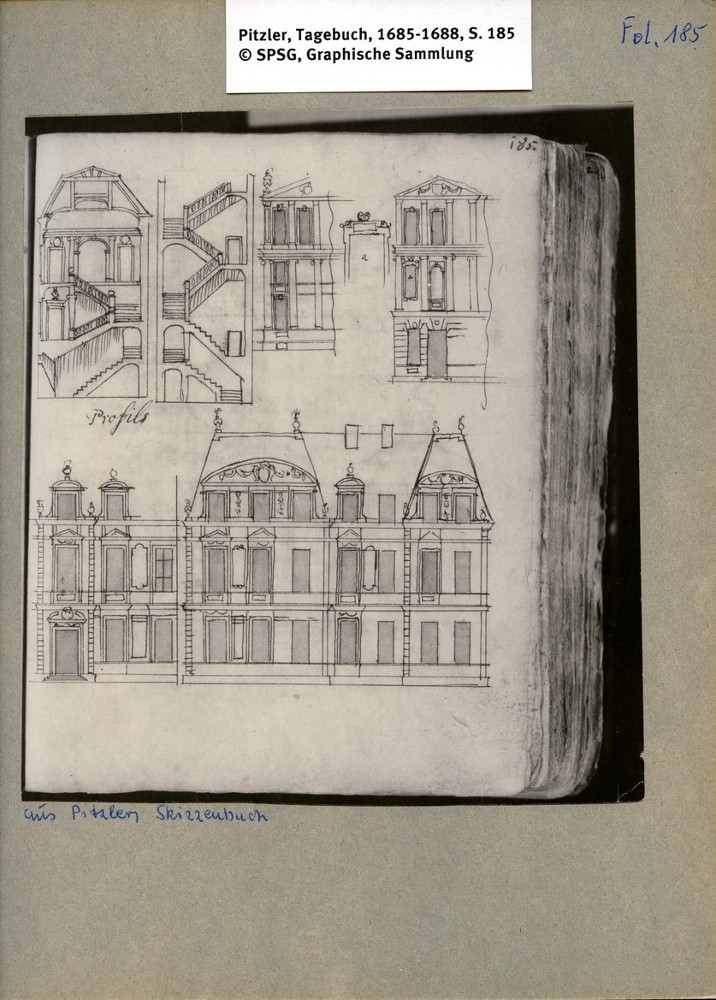 Pitzler, Tagebuch, 1685-1688, S. 185
© SPSG, Graphische Sammlung
Fol. 185
185.
Profils
a
aus Pitzlers Skizzenbuch